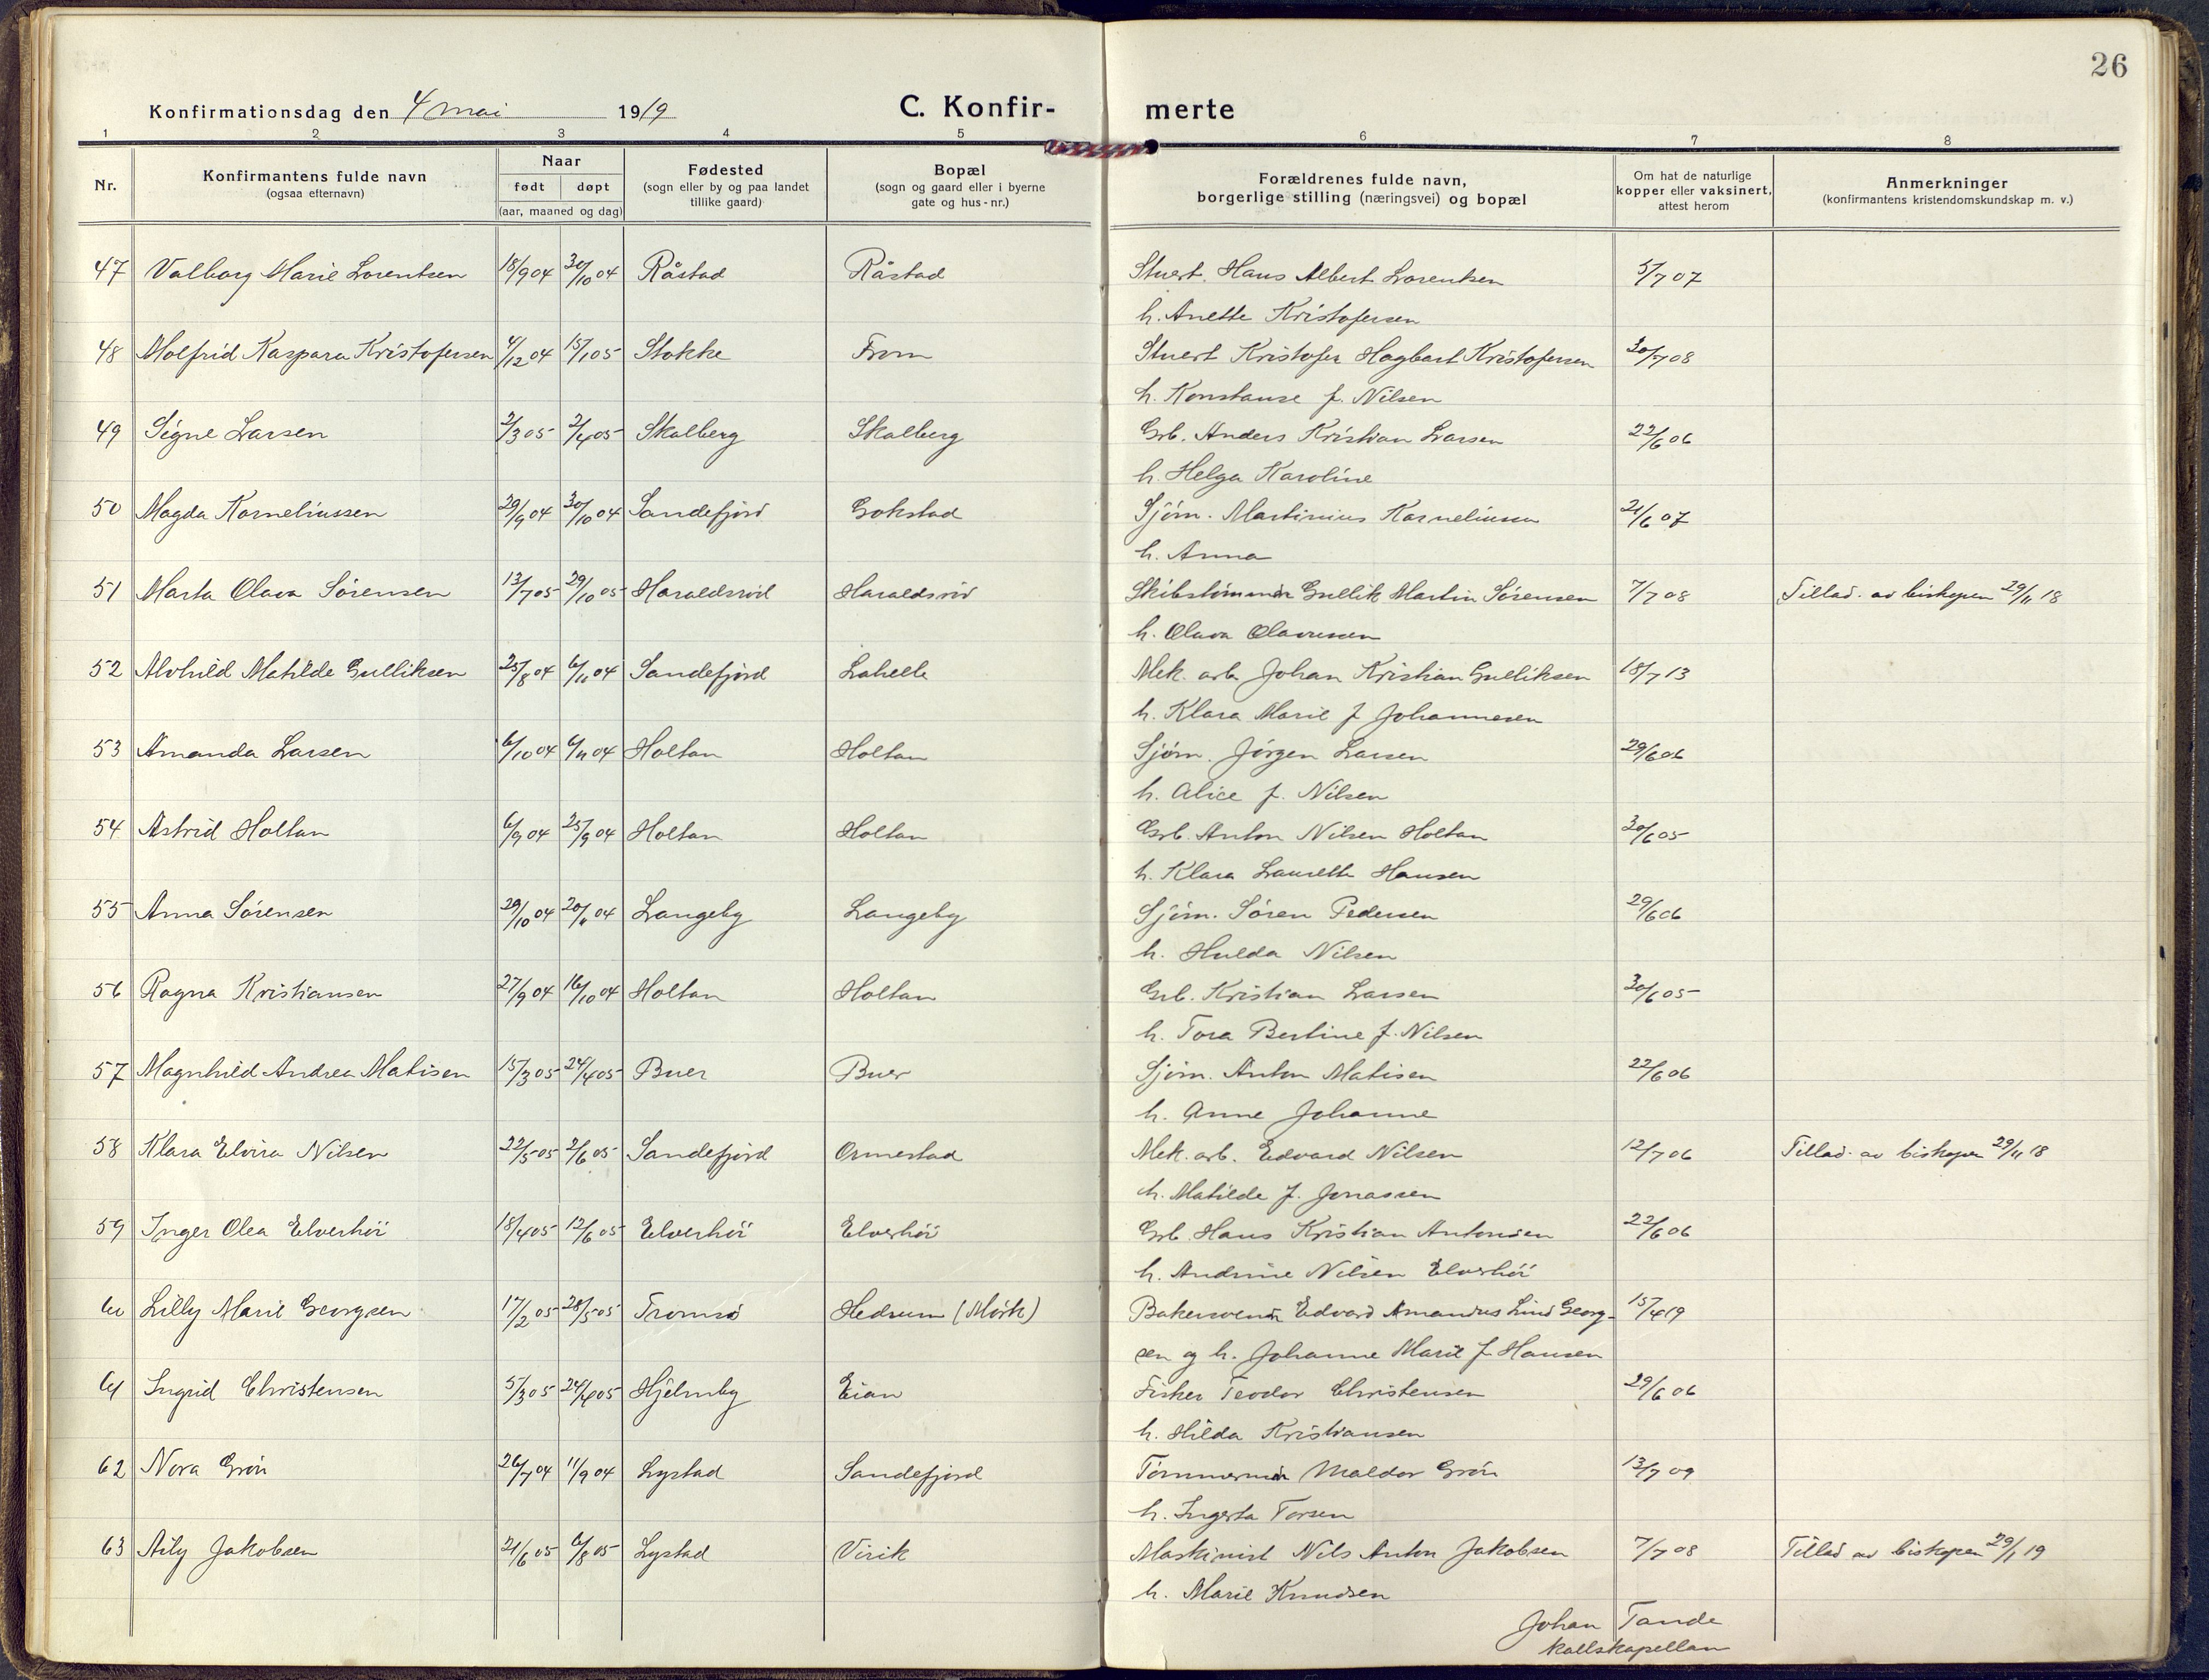 26
Konfirmationsdag den 4 mai 1919 C. Konfir- merte
1 2 3 4 5 6 7 8
Nr. Konfirmantens fulde navn (ogsaa efternavn) Naar født døpt (aar, maaned og dag) Fødested (sogn eller by og paa landet tillike gaard) Bopæl (sogn og gaard eller i byerne gate og hus-nr.) Forældrenes fulde navn, borgerlige stilling (næringsvei) og bopæl Om hat de naturlige kopper eller vaksinert, attest herom Anmerkninger (konfirmantens kristendomskundskap m. v.)
47 Valborg Marie Lorentsen 18/9 04 30/10 04 Råstad Råstad Stuert. Hans Albert Lorentsen 5/7 07
h. Anette Kristofersen
48 Molfrid Kaspara Kristofersen 4/12 04 15/1 05 Stokke From Stuert Kristofer Hagbart Kristofersen 30/7 08
h. Konstanse f. Nilsen
49 Signe Larsen 2/3 05 2/4 05 Skalberg Skalberg Grb. Anders Kristian Larsen 22/6 06
h. Helga Karoline
50 Magda Korneliussen 29/9 04 30/10 04 Sandefjord Gokstad Sjöm. Martinius Korneliussen 21/6 07
h. Anna
51 Marta Olava Sörensen 13/7 05 29/10 05 Haraldsröd Haraldsröd Skibstömmerm Gullik Martin Sörensen 7/7 08 Tillad. av biskopen 29/11 18
h. Olava Olavesen
52 Alvhild Matilde Gulliksen 25/8 04 6/11 04 Sandefjord Lahelle Mek. arb. Johan Kristian Gulliksen 18/7 13
h. Klara Marie f Johannesen
53 Amanda Larsen 6/10 04 6/11 04 Holtan Holtan Sjöm. Jörgen Larsen 29/6 06
h. Alice f. Nilsen
54 Astrid Holtan 6/9 04 25/9 04 Holtan Holtan Grb. Anton Nilsen Holtan 30/6 05
h. Klara Laurette Hansen
55 Anna Sörensen 29/10 04 20/11 04 Langeby Langeby Sjöm. Sören Pedersen 29/6 06
h. Hulda Nilsen
56 Ragna Kristiansen 27/9 04 16/10 04 Holtan Holtan Grb. Kristian Larsen 30/6 05
h. Tora Bertine f. Nilsen
57 Magnhild Andrea Matisen 15/3 05 24/4 05 Buer Buer Sjöm. Anton Matisen 22/6 06
h. Anne Johanne
58 Klara Elvira Nilsen 22/5 05 2/6 05 Sandefjord Ormestad Mek. arb. Edvard Nilsen 12/7 06 Tillad. av biskopen 29/11 18
h. Matilde f. Jonassen
59 Inger Olea Elverhöi 18/4 05 12/6 05 Elverhöi Elverhöi Grb. Hans Kristian Antonsen 22/6 06
h. Andrine Nilsen Elverhöi
60 Lilly Marie Georgsen 17/2 05 28/5 05 Tromsö Hedrum (Mörk) Bakersvenn Edvard Amandus Lind Georg- 15/4 19
sen og h. Johanne Marie f. Hansen
61 Ingrid Christensen 5/3 05 24/4 05 Hjelmby Eian Fisker Teodor Christensen 29/6 06
h. Hilda Kristiansen
62 Nora Grön 26/7 04 11/9 04 Lystad Sandefjord Tömmerm Maldor Grön 13/7 09
h. Ingerta Torsen
63 Aily Jakobsen 21/6 05 6/8 05 Lystad Virik Maskinist Nils Anton Jakobsen 7/7 08 Tillad av biskopen 29/1 19
h. Marie Knudsen
Johan Tande
kallskapellan